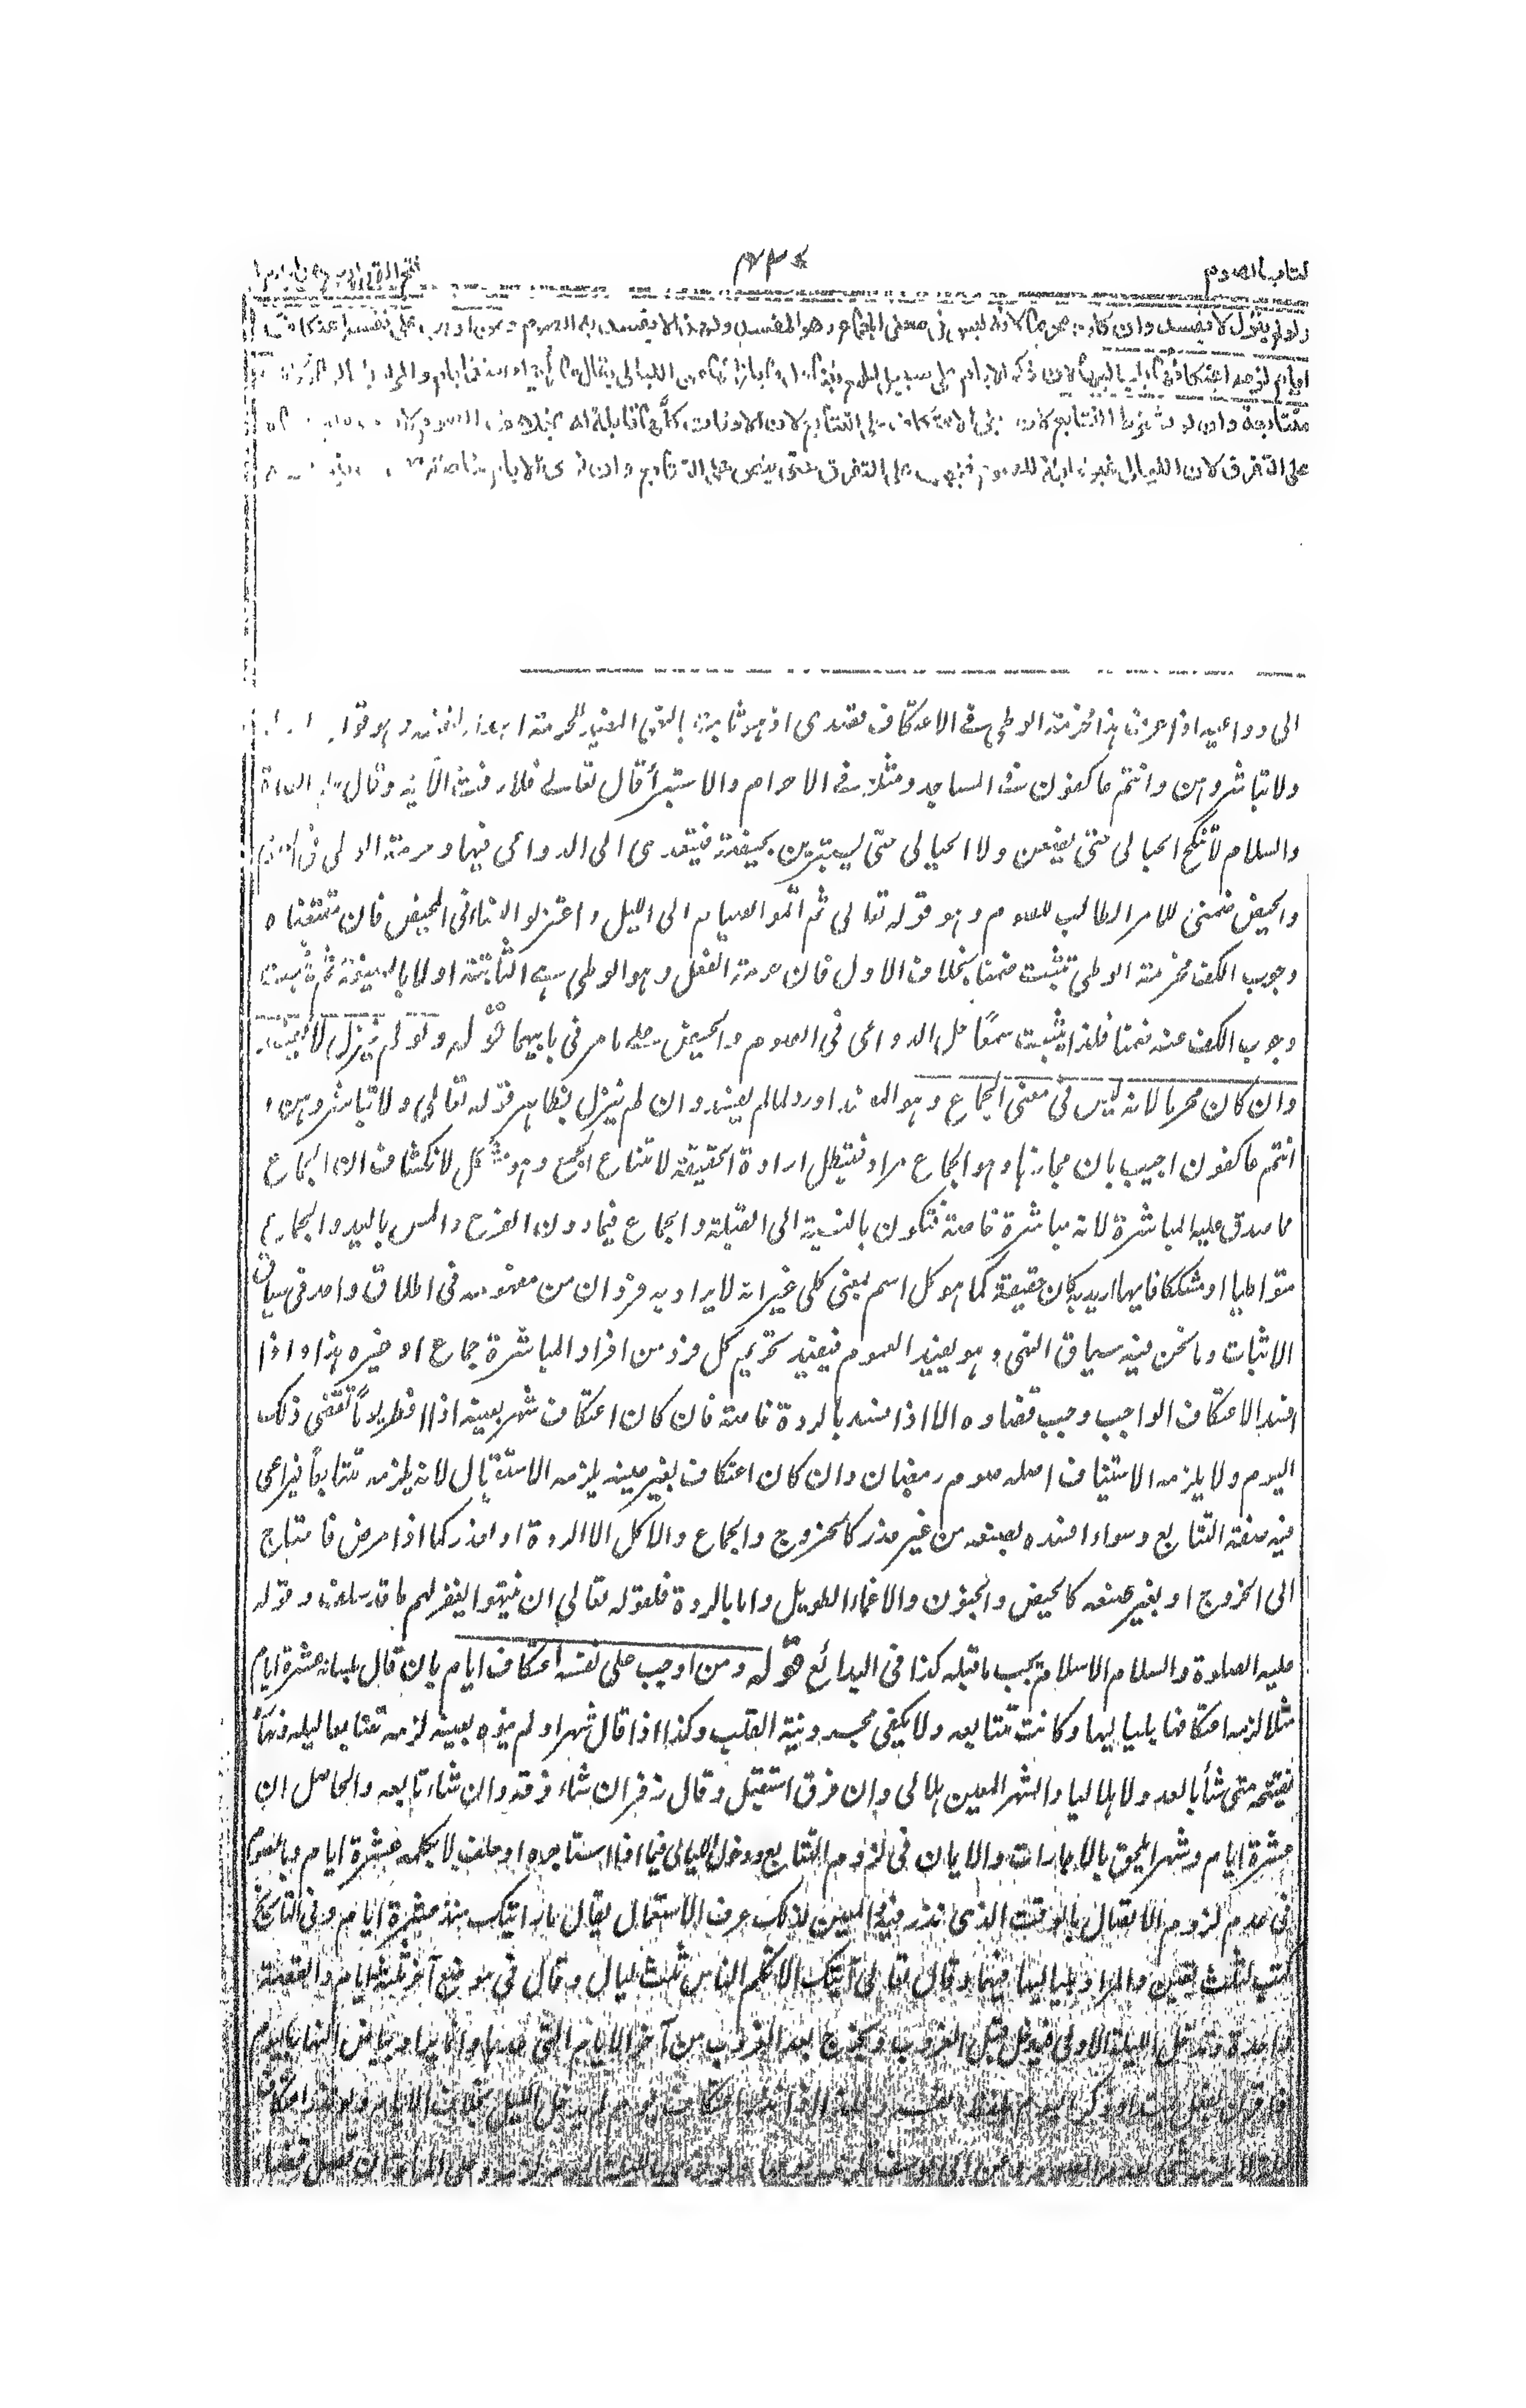 كتاب الصوم
٤٣٨
فتح القدير
ولو لم ينزل لا يفسد وان كان محرما لانه ليس فى معنى الجماع وهو المفسد ولهذا لا يفسد به الصوم ومن اوجب على نفسه اعتكاف
ايام لزمه اعتكافها بلياليها لان ذكر الايام على سبيل الجمع يتناول ما بازائها من الليالى يقال ما رأيتك منذ ايام والمراد
متتابعة وان لم يشترط التتابع لان مبنى الاعتكاف على التتابع لان الاوقات كلها قابلة له بخلاف الصوم
على التفرق لان الليالى غير قابلة للصوم فيجب على التفرق حتى ينص على التتابع وان نوى الايام خاصة
الى دواعيه اذا عرف هذا فحرمة الوطى فى الاعتكاف تتعدى اذ هو ثابتة بالنهى المفيد للحرمة
ولا تباشروهن وانتم عاكفون فى المساجد ومثله فى الاحرام والاستبرأ قال تعالى فلا رفث الآية وقال عليه الصلوة
والسلام لا تنكح الحبالى حتى يضعن ولا الحيالى حتى يستبرئن بحيضة فيتعدى الى الدواعى فيها وحرمة الوطى فى الصوم
والحيض ضمنى للامر الطالب للصوم وهو قوله تعالى ثم اتموا الصيام الى الليل واعتزلوا النساء فى المحيض فان مقتضاه
وجوب الكف فحرمة الوطى تثبت ضمنا بخلاف الاول فان حرمة الفعل وهو الوطى هى الثابتة اولا بالصيغة ثم يثبت
وجوب الكف عنه ضمنا فلذا يثبت سمعا حل الدواعى فى الصوم والحيض على ما مر فى بابيهما قوله ولو لم ينزل لا يفسد
وان كان محرما لانه ليس فى معنى الجماع وهو المفسد اورد لما لم يفسد وان لم ينزل بظاهر قوله تعالى ولا تباشروهن و
انتم عاكفون اجيب بان مجازها وهو الجماع مراد فتبطل ارادة الحقيقة لامتناع الجمع وهو مشكل لانكشاف ان الجماع
مما صدق عليه المباشرة لانه مباشرة خاصة فتكون بالنسبة الى القبلة والجماع فيما دون الفرج والمس باليد والجماع
متواطيا او مشككا فايها اريد به كان حقيقة كما هو كل اسم لمعنى كلى غير انه لا يراد به فردان من مفهومه فى اطلاق واحد فى سياق
الاثبات وما نحن فيه سياق النهى وهو يفيد العموم فيفيد تحريم كل فرد من افراد المباشرة جماع او غيره هذا واذا
افسد الاعتكاف الواجب وجب قضاوه الا اذا فسد بالردة خاصة فان كان اعتكاف شهر بعينه اذا افطر يوما يقضى ذلك
اليوم ولا يلزمه الاستيناف اصله صوم رمضان وان كان اعتكاف بغير عينه يلزمه الاستقبال لانه يلزمه متتابعا فيراعى
فيه صفة التتابع وسواء افسده بصنعه من غير عذر كالخروج والجماع والاكل الا الردة او لعذر كما اذا مرض فاحتاج
الى الخروج او بغير صنعه كالحيض والجنون والاغماء الطويل واما بالردة فلقوله تعالى ان ينتهوا يغفر لهم ما قد سلف وقوله
عليه الصلوة والسلام الاسلام يجب ما قبله كذا فى البدائع قوله ومن اوجب على نفسه اعتكاف ايام بان قال بلسانه عشرة ايام
مثلا لزمه اعتكافها بلياليها وكانت متتابعه ولا يكفى مجرد ونية القلب وكذا اذا قال شهرا ولم ينوه بعينه لزمه متتابعا ليله ونهاره
يفتتحه متى شاء بالعدد ولا هلاليا والشهر المعين هلالى وان فرق استقبل وقال زفر ان شاء فرقه وان شاء تابعه والحاصل ان
عشرة ايام وشهرا يلحق بالاجارات والايمان فى لزوم التتابع ودخول الليالى فيما اذا استاجره او حلف لا يكلمه عشرة ايام وبالصوم
فى عدم لزوم الاتصال بالوقت الذى نذر فيه والمعين لذلك عرف الاستعمال يقال ما رأيتك منذ عشرة ايام وفى التاريخ
كتب لثلث بقين والمراد بلياليها فيهما وقال تعالى آيتك الا تكلم الناس ثلث ليال وقال فى موضع آخر ثلثة ايام والقصة
واحدة وتدخل الليلة الاولى فيدخل قبل الغروب ويخرج بعد الغروب من آخر الايام التى عدها